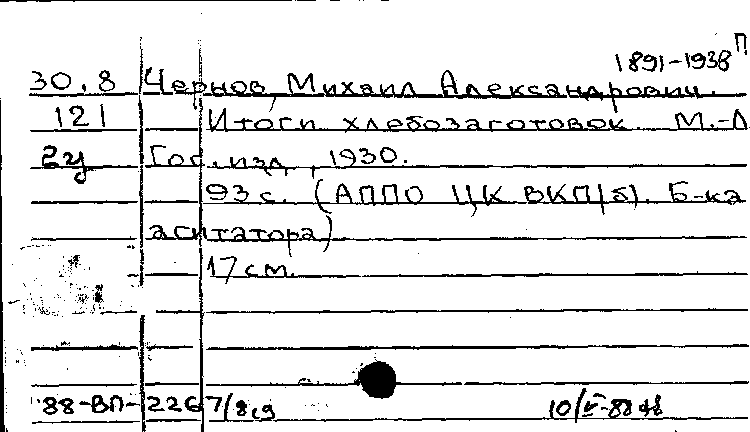 П
1891-1938
30.8 Чернов, Михаил Александрович.
121 Итоги хлебозаготовок М.-Л
2ц Гос. изд, 1930.
93 с. (АППО ЦК ВКП(б). Б-ка
агитатора)
17 см.
88-ВП-2267/
10/V-88